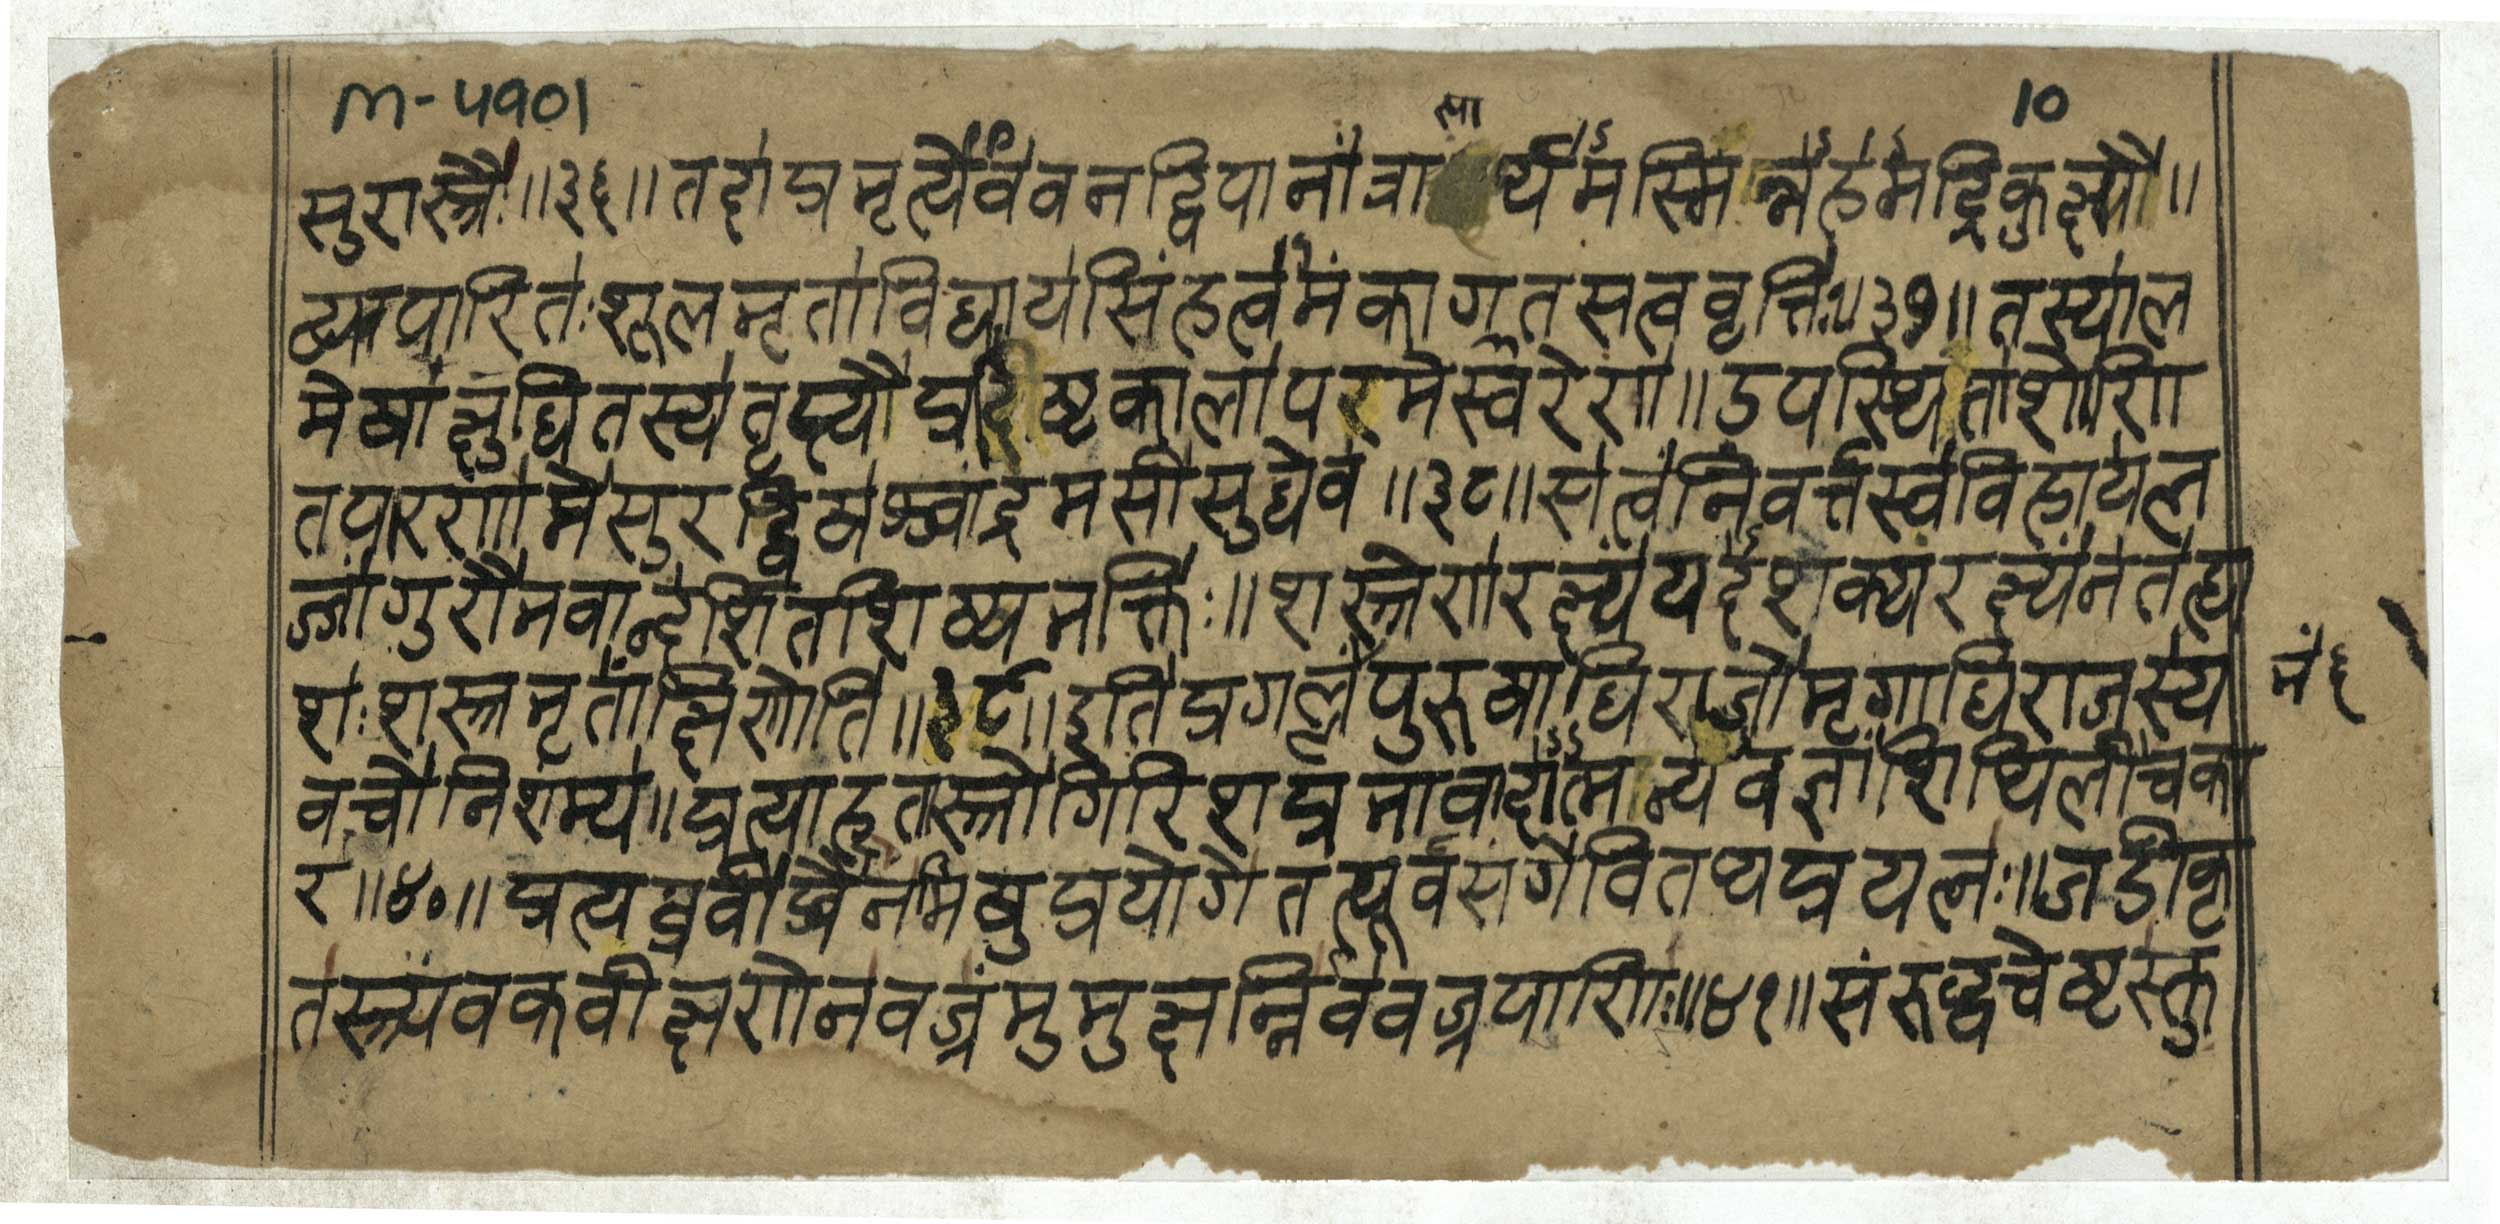 M-4901
10
त्सा
सुरास्त्रैः॥३६॥तदाप्रभृत्यैववनद्विपानांत्रा र्थमस्मिन्नहमद्रिकुक्षौ॥
व्यापारितःशूलभृताविधायसिंहत्वमंकागतसत्ववृत्तिः॥३७॥तस्याल
मेषाक्षुधितस्यतृप्त्यैप्रदिष्टकालापरमेस्वरेण॥उपस्थिताशोणि
तपारणामेसुरद्विषश्चांद्रमसीसुधेव॥३८॥सत्वंनिवर्त्तस्वविहायल
ज्जांगुरौभवान्दर्शितशिष्यभक्तिः॥शस्त्रेणरक्ष्यंयदशक्यरक्ष्यंनतद्य
शःशस्त्रभृतांक्षिणोति॥३९॥इतिप्रगल्भंपुरुषाधिराजोमृगाधिराजस्य
मं६
वचोनिशम्य॥प्रत्याहतास्त्रोगिरिशप्रभावादात्मान्यवज्ञांशिथिलीचका
र॥४०॥प्रत्यब्रवीच्चैनमिषुप्रयोगेतत्पूर्वसंगेवितथप्रयत्नः॥जडीकृ
तस्त्र्यंवकवीक्षणेनवज्रंमुमुक्षन्निववज्रपाणिः॥४१॥संरुद्धचेष्टस्तु